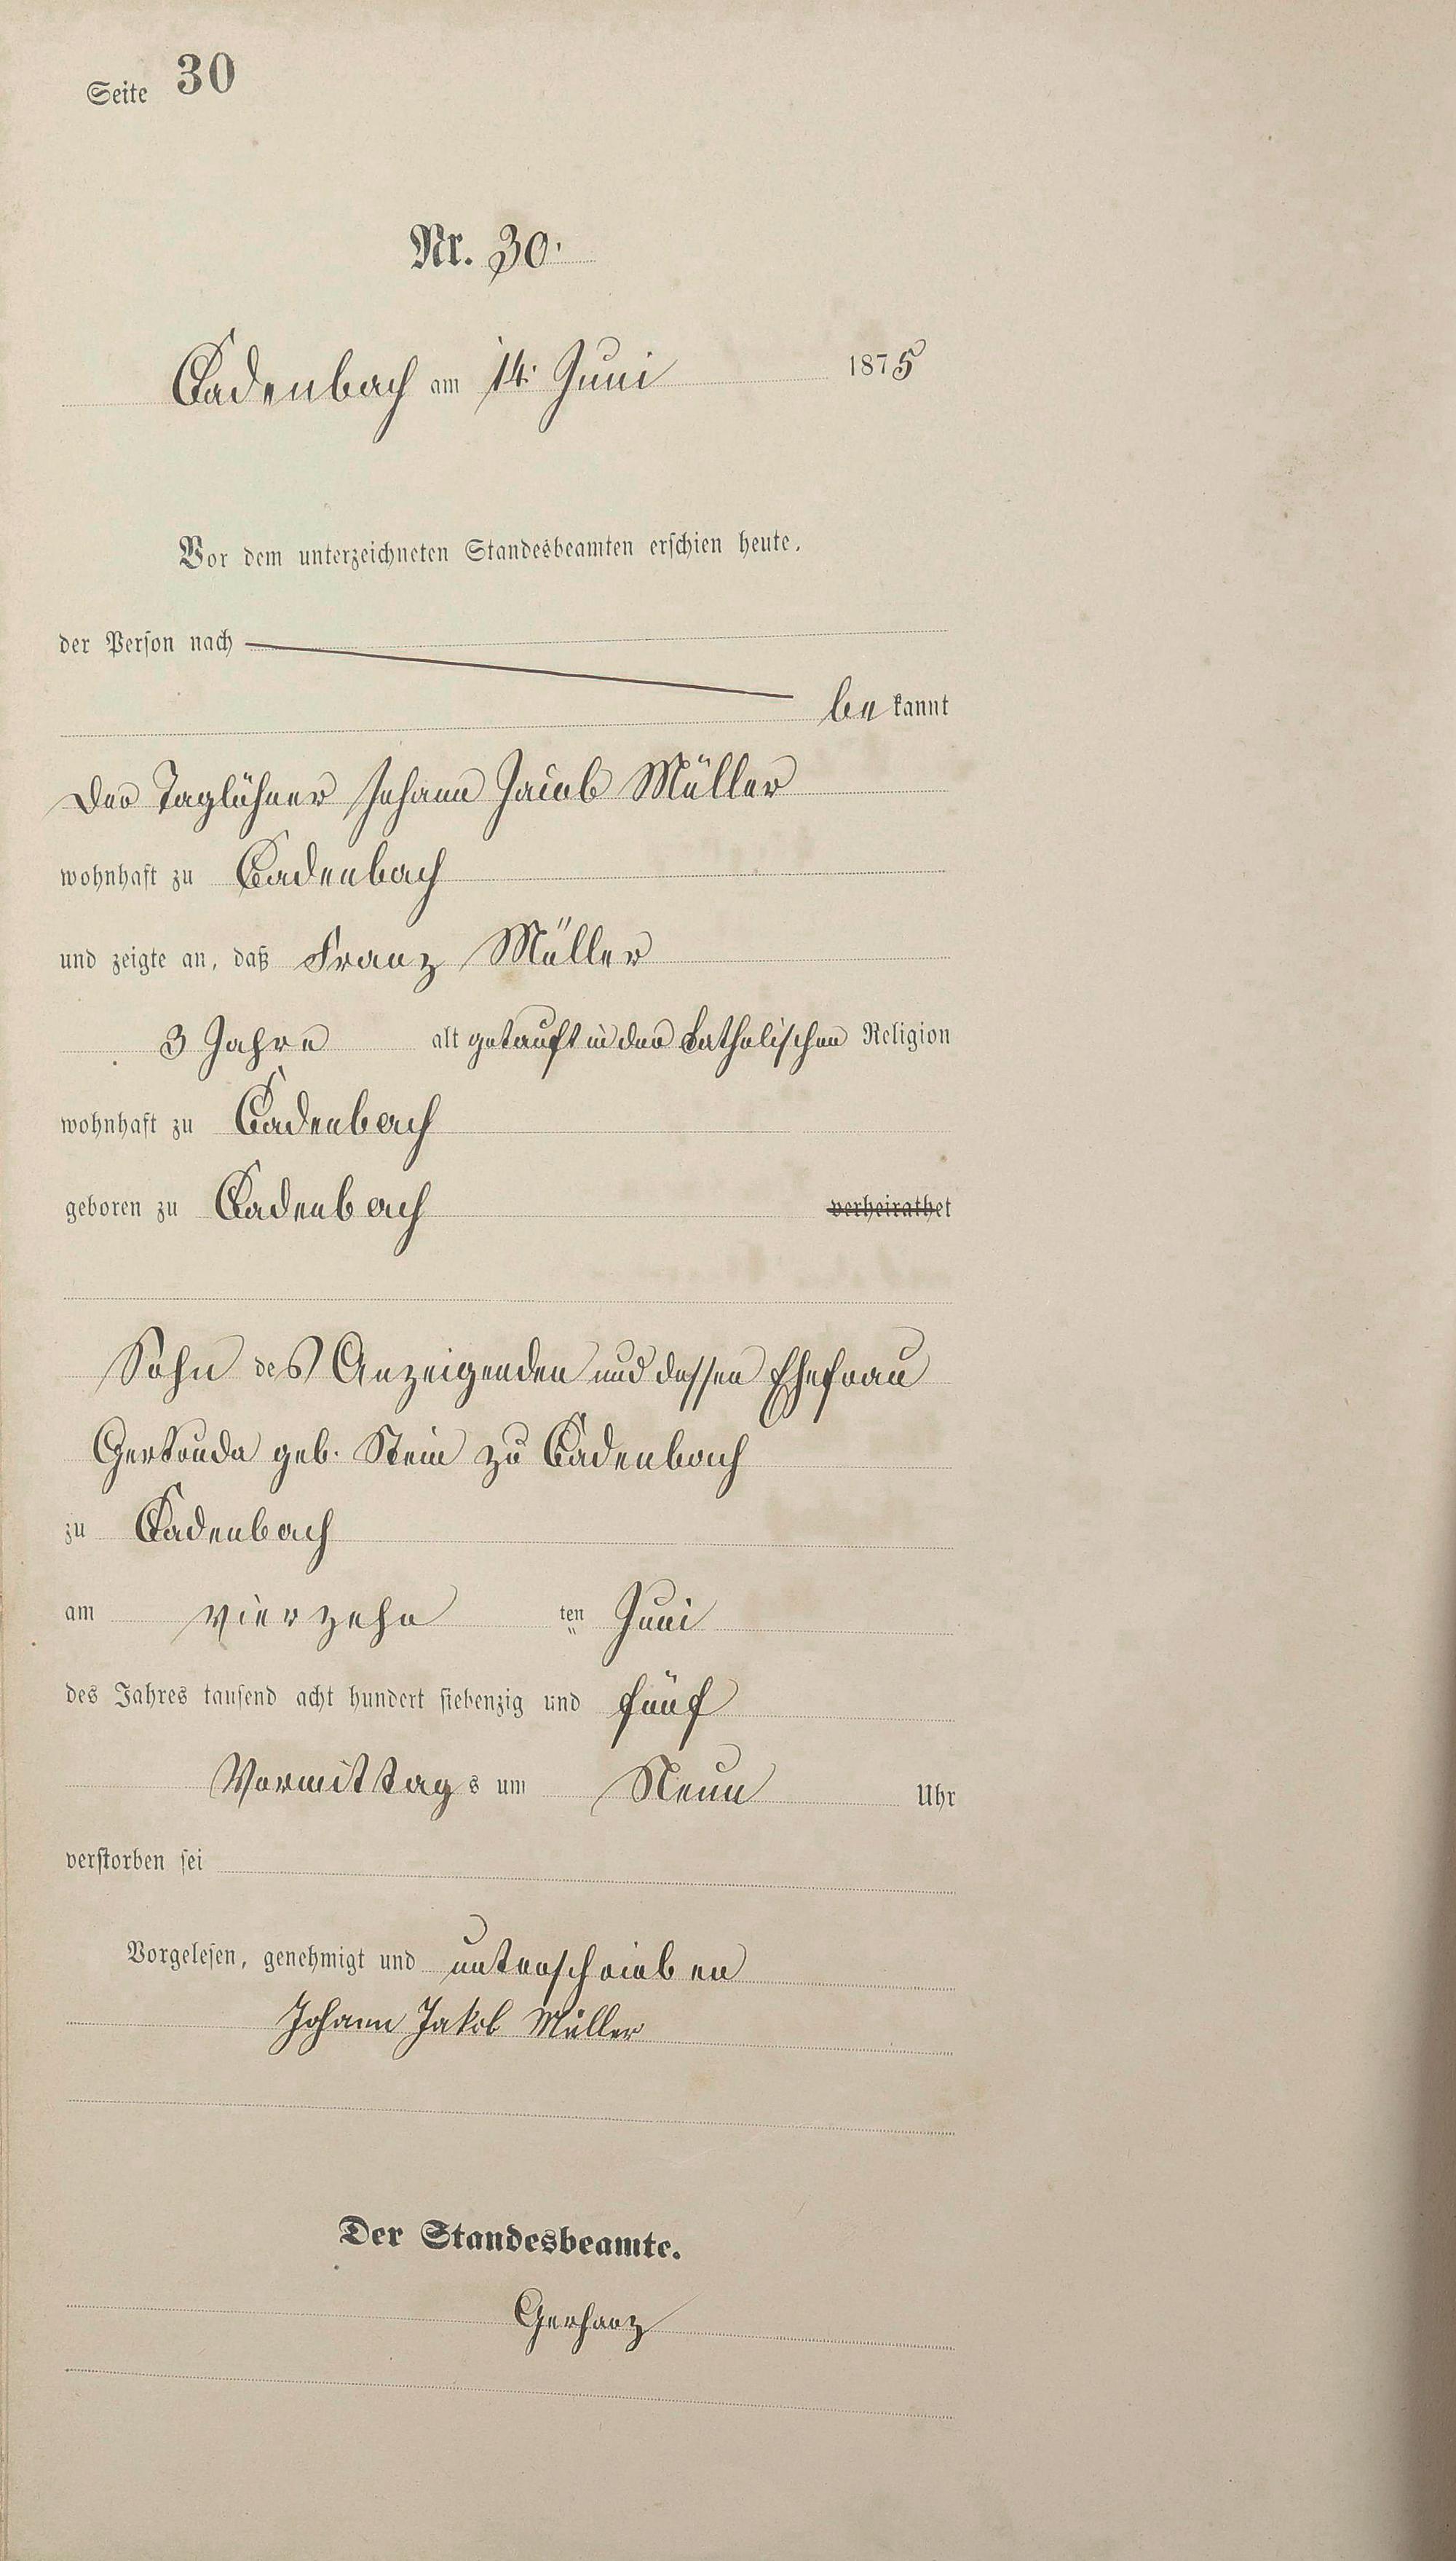 Seite 30
Nr. 30.
Cadenbach am 14. Juni 1875
Vor dem unterzeichneten Standesbeamten erschien heute,
der Person nach
bekannt
Der Taglöhner Johann Jacob Müller
wohnhaft zu Cadenbach
und zeigte an, daß Franz Müller
3 Jahre alt getauft in der katholischen Religion
wohnhaft zu Cadenbach
geboren zu Cadenbach verheirathet
Sohn des Anzeigenden und dessen Ehefrau
Gertruda geb. Stein zu Cadenbach
zu Cadenbach
am vierzehn ten Juni
des Jahres tausend acht hundert siebenzig und fünf
Vormittags um Neun Uhr
verstorben sei
Vorgelesen, genehmigt und unterschrieben
Johann Jakob Müller
Der Standesbeamte.
Gerharz